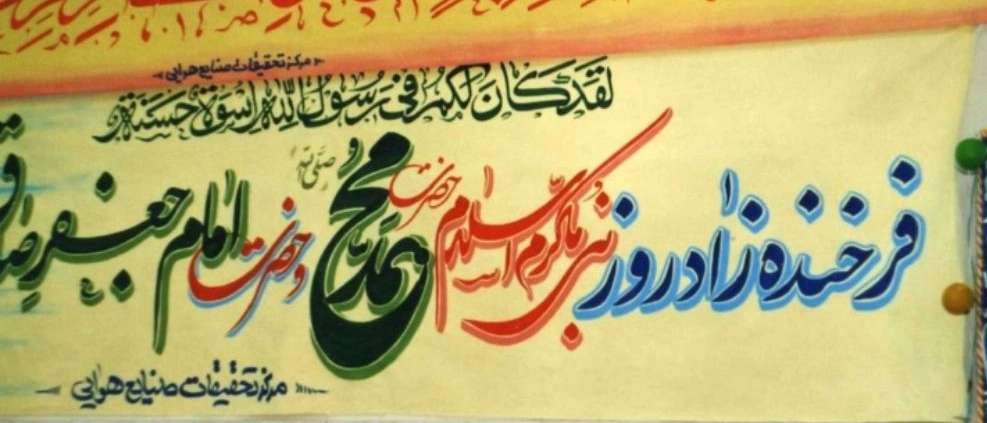 مرکز تحقیقات صنایع هوایی
لقد کان لکم فی رسول الله اسوة حسنة
فرخنده زادروز نبی مکرم اسلام حضرت محمد صلی الله و حضرت امام جعفر صادق
مرکز تحقیقات صنایع هوایی